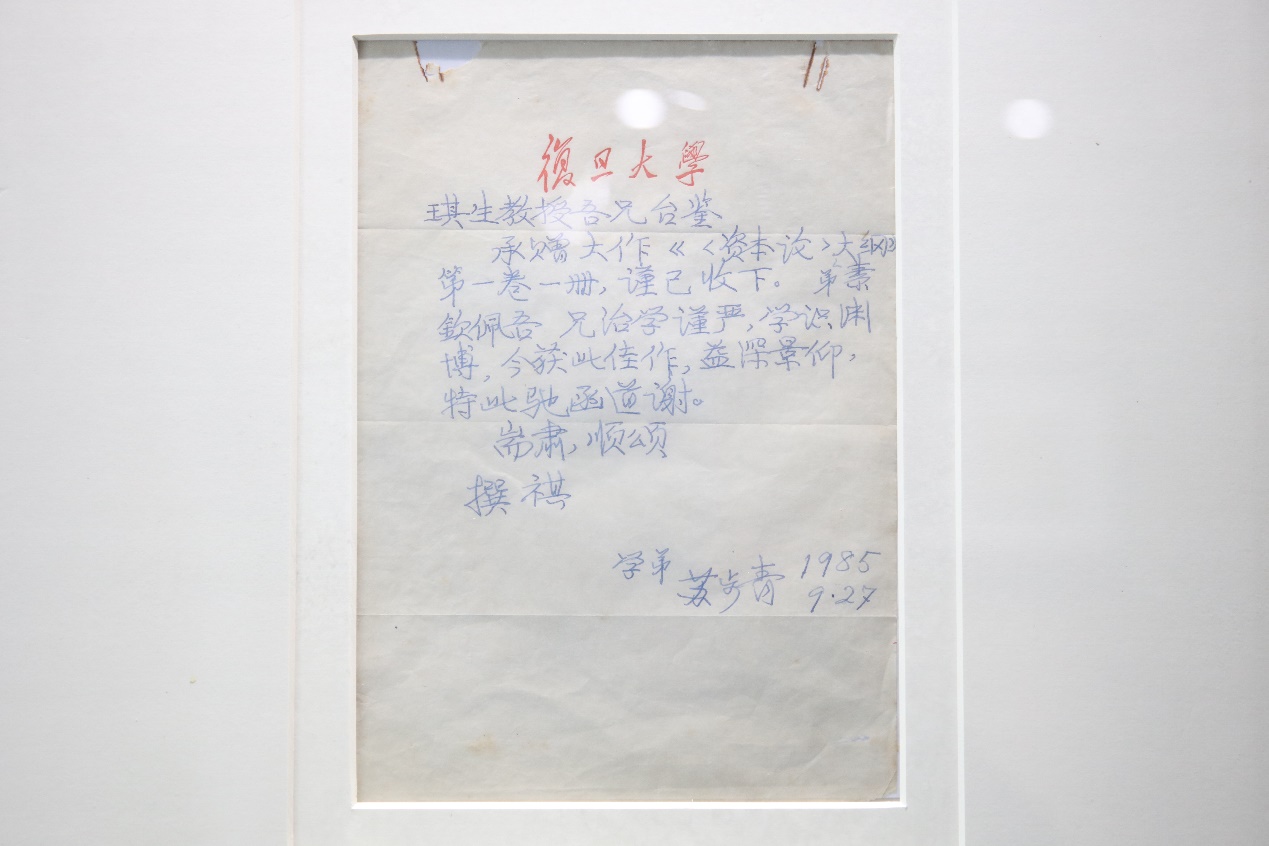 復旦大學
琪生教授吾兄台鉴
承赠大作《〈资本论〉大纲》
第一卷一册，谨已收下。弟素
钦佩吾 兄治学谨严，学识渊
博，今获此佳作，益深景仰，
特此驰函道谢。
耑肃，顺颂
撰祺
学弟 苏步青 1985
9.27